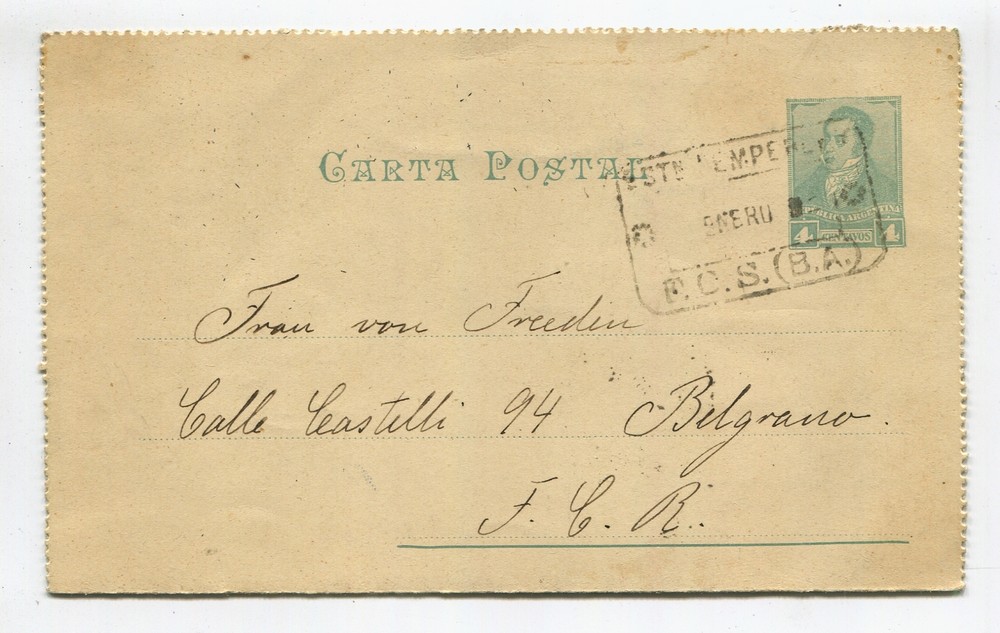 CARTA POSTAL
ESTN TEMPERLEY
ENERO
F.C.S.(B.A.)
REPUBLICA ARGENTINA
4 CENTAVOS 4
Frau von Freeden
Calle Castelli 94 Belgrano.
F. C. R.